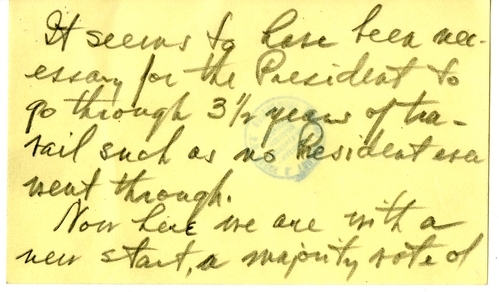 It seems to have been nec-
essary for the President to
go through 3½ years of tra-
vail such as no President ever
went through.
Now here we are with a
new start, a majority vote of